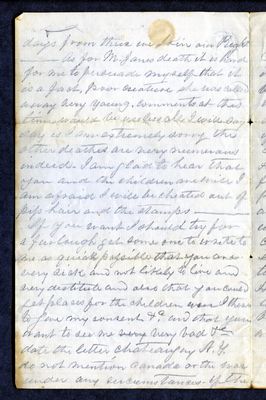 days from this we join our Regt
As for M. Janes death it is hard
for me to persuade myself that it
is a fact, Poor creature she was called
away very young. Comments at this
time would be useless also I will
day is I am extremely sorry the
other deaths are very numerous
indeed. I am glad to hear that
you and the children are well I
am afraid I will be cheated out of
hair and the stamps.
If you want I should try for
a furlough get some one to write to
me as quick as possible that you are
very sick and not likely to live and
very destitute and also that you could
get places for the children were I there
to give my consent &c. and that you
want to see me very very bad &c.
date the letter Chateaugay N.Y.
do not mention Canada or the war
under any circumstances. If the